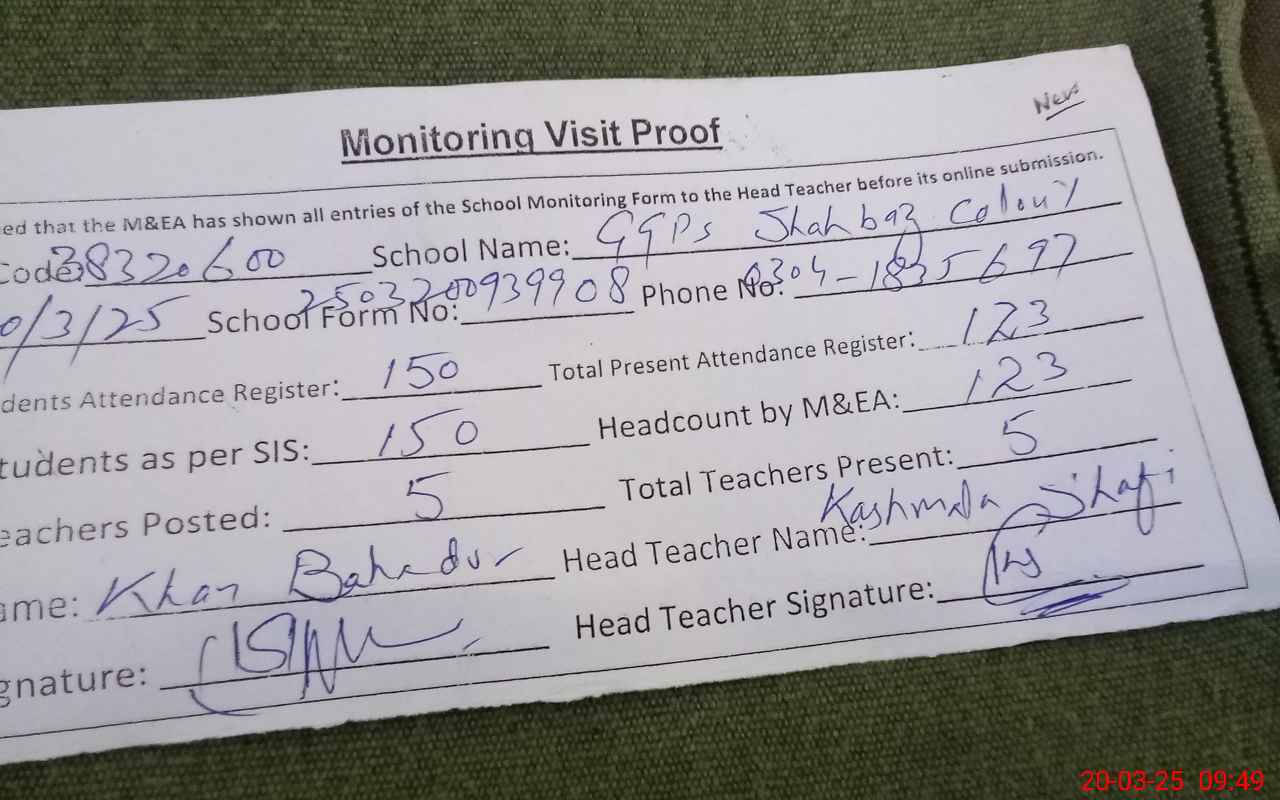 New
Monitoring Visit Proof
ed that the M&EA has shown all entries of the School Monitoring Form to the Head Teacher before its online submission.
Code: 38320600 School Name: GGPS Shahbaz Colony
0/3/25 School Form No: 2503200939908 Phone No: 0304-1835697
dents Attendance Register: 150 Total Present Attendance Register: 123
tudents as per SIS: 150 Headcount by M&EA: 123
eachers Posted: 5 Total Teachers Present: 5
ame: Khan Bahadur Head Teacher Name: Kashmala Shafi
gnature: Head Teacher Signature:
20-03-25 09:49